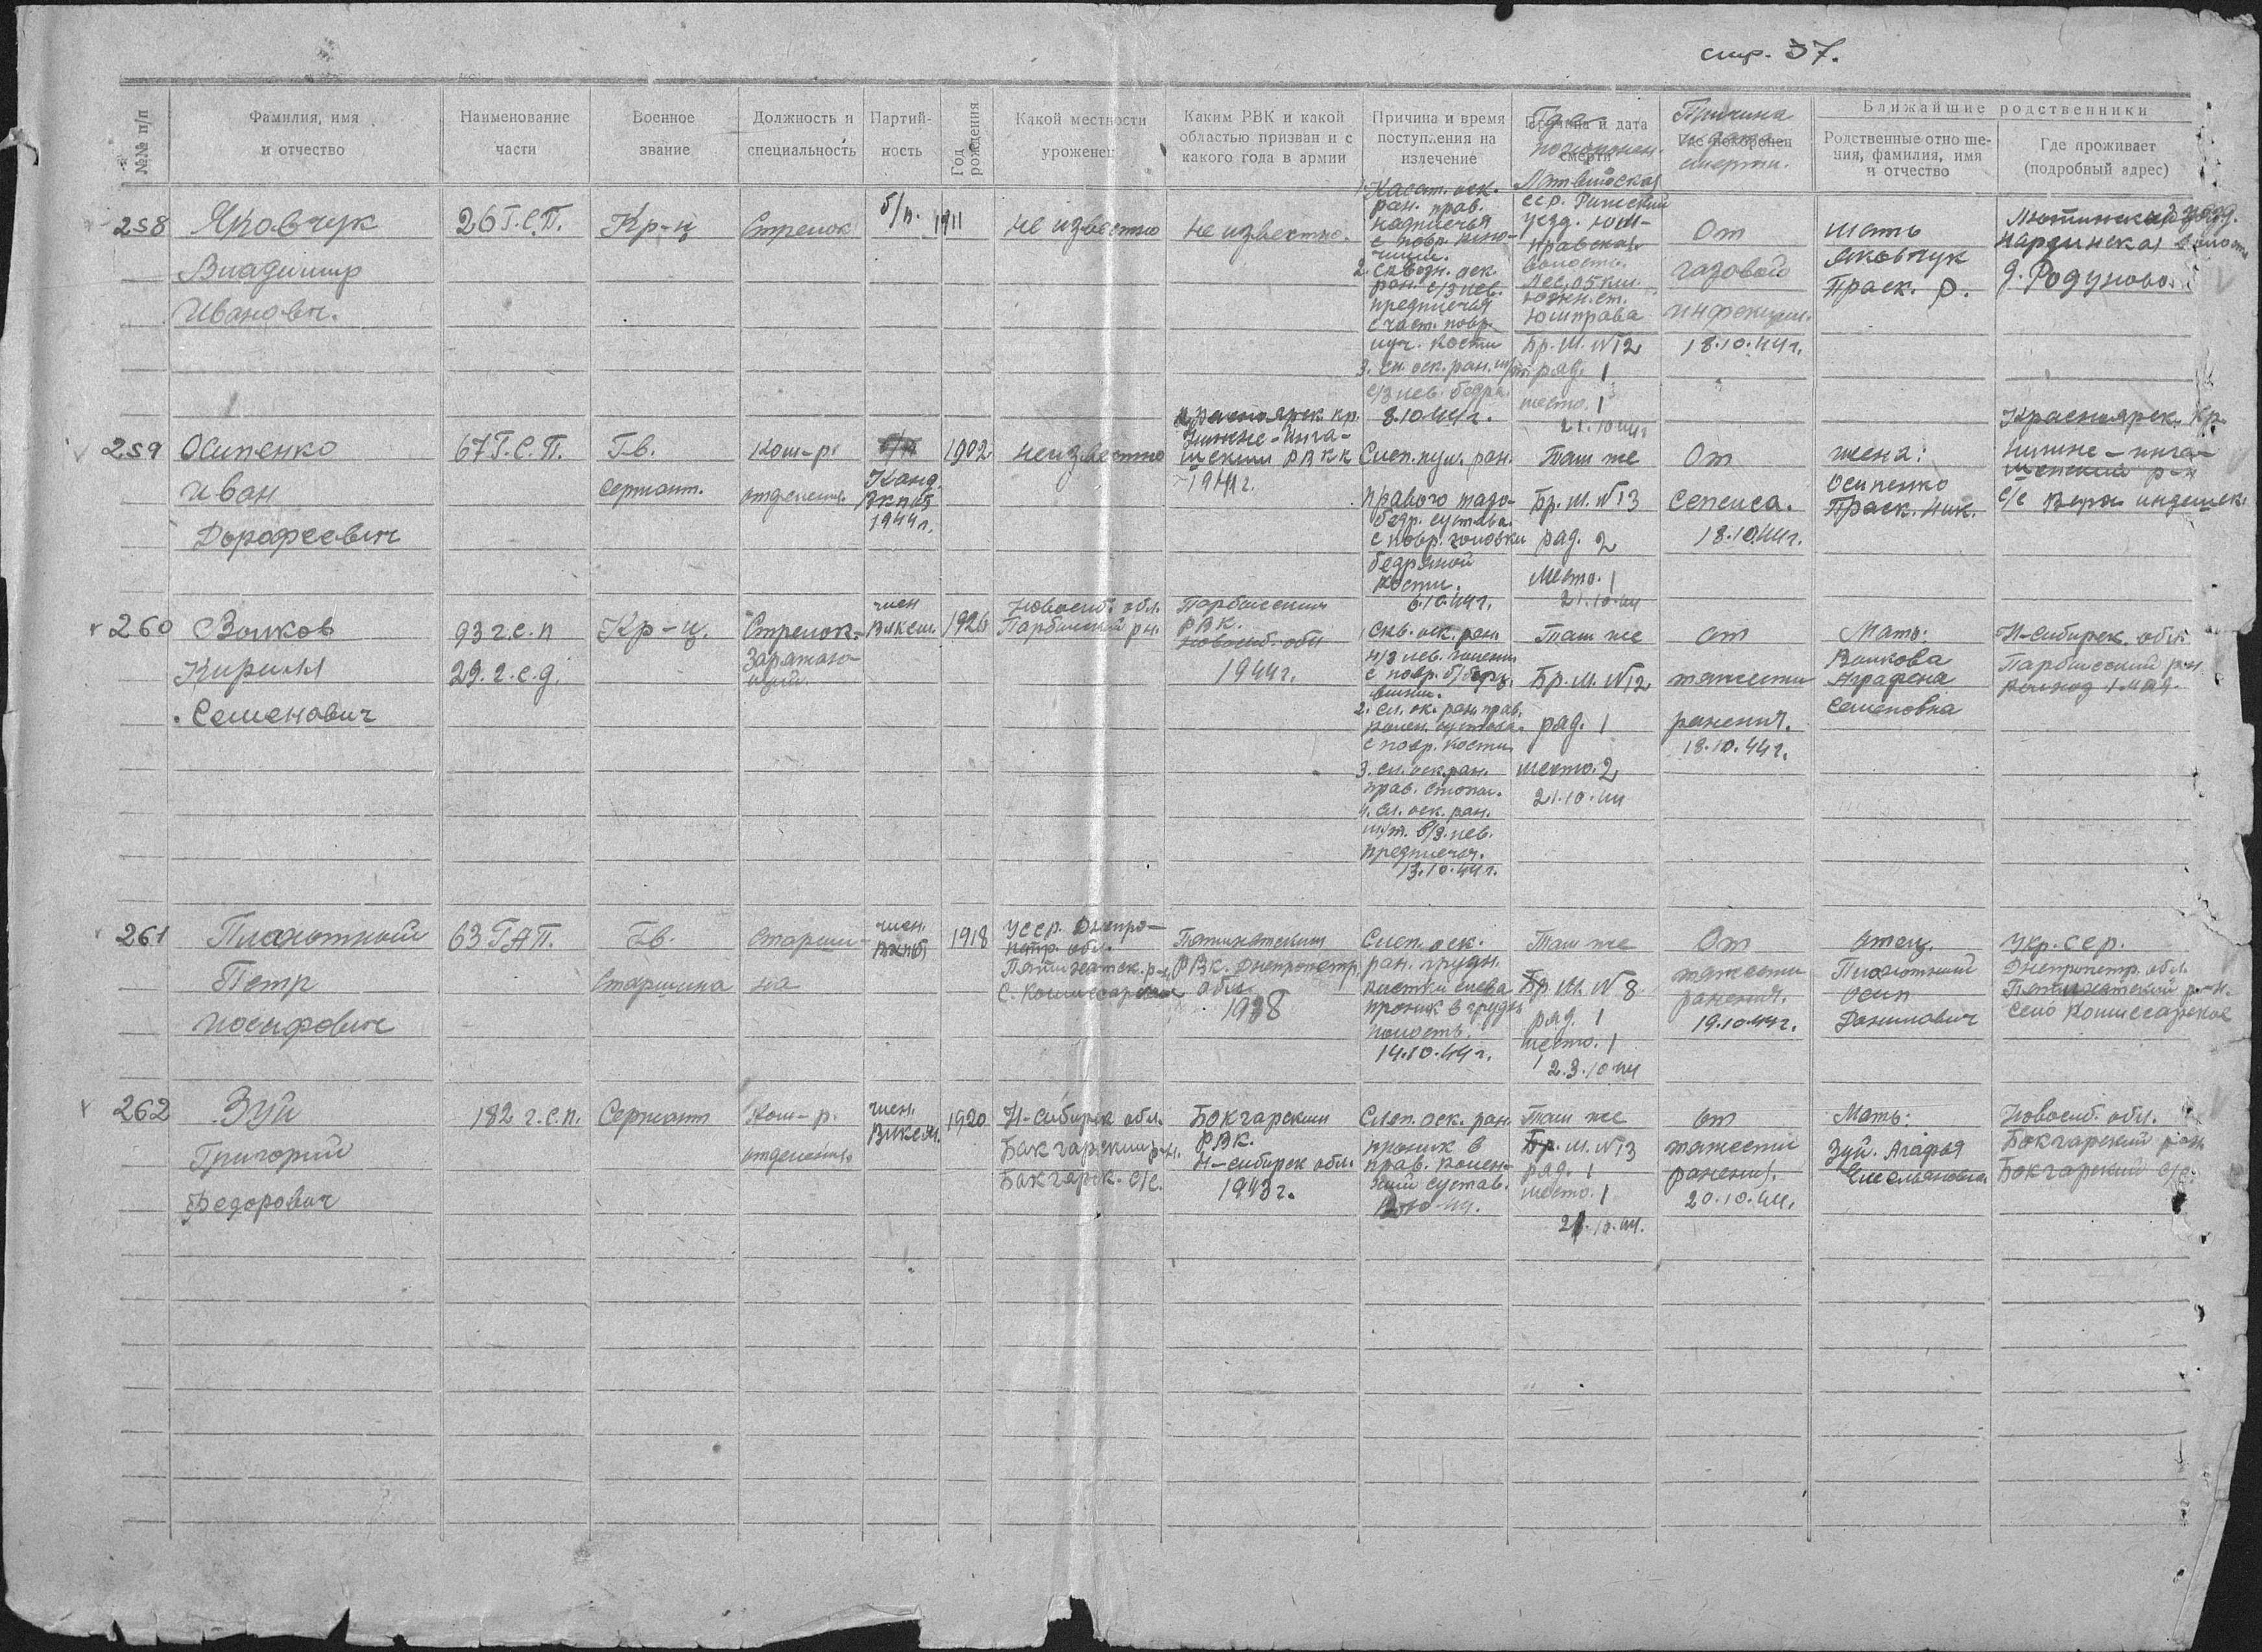 стр. 37.
№№ п/п
Фамилия, имя
и отчество
Наименование
части
Военное
звание
Должность и
специальность
Партий-
ность
Год
рождения
Какой местности
уроженец
Каким РВК и какой
областью призван и с
какого года в армии
Причина и время
поступления на
излечение
Причина и дата
смерти
Где
похоронен.
Где похоронен
Причина
и дата
смерти.
Ближайшие родственники
Родственные отноше-
ния, фамилия, имя
и отчество
Где проживает
(подробный адрес)
258
Яковчук
Владимир
Иванович.
26 Г.С.П.
Кр-ц
Стрелок
б/п.
1911
не известно
не известно.
1. Касат. оск.
ран. прав.
надплечья
с повр. клю-
чицы.
2. Сквозн. оск.
ран. с/3 лев.
предплечья
с част. повр.
луч. кости
3. Сл. оск. ран.
с/3 лев. бедра.
8.10.44г.
Латвийская
ССР. Рижский
уезд. Юм-
правская
волость.
Лес, 05 км.
южн. ст.
Юмправа
Бр. М. №12
ряд. 1
место. 1
21.10.44
От
газовой
инфекции.
18.10.44г.
мать
Яковчук
Праск. Ф.
уезд.
волость
д. Родуново.
259
Осипенко
Иван
Дорофеевич
67 Г.С.П.
Гв.
Сержант.
Ком-р
отделения.
б/п
Канд.
ВКПб
1944г.
1902
неизвестно
Красноярск. кр.
Нижне-Инга-
шский РВКК
1941г.
Слеп. пул. ран.
правого тазо-
бедр. сустава.
с повр. головки
бедряной
кости.
6.10.44г.
Там же
Бр. М. №13
ряд. 2
Место. 1
21.10.44
От
сепсиса.
18.10.44г.
жена:
Осипенко
Праск. Ник.
Красноярск. кр.
Нижне-инга-
шский р-н
с/с Верх
260
Волков
Кирилл
Семенович
93 г.с.п
29. г.с.д.
Кр-ц.
Стрелок-
Заряжаю-
щий.
член
ВЛКСМ.
1926
Новосиб. обл.
Парбигский р-н.
Парбигским
РВК.
Новосиб. обл
1944г.
1 Скв. оск. ран
н/3 лев. голени
с повр. б/берц.
2. Сл. ок. ран. прав.
колен. сустава.
с повр. кости
3. Сл. оск. ран.
прав. стопы.
4. Сл. оск. ран.
в/3. лев.
предплечья.
13.10.44г.
Там же
Бр. М. №12
ряд. 1
место. 2
21.10.44
от
тяжести
ранения.
18.10.44г.
Мать:
Волкова
Аграфена
Семеновна
Н-Сибирск. обл.
Парбигский р-н
261
Плахотный
Петр
Иосифович
63 ГАП.
Гв.
Старшина
Старши-
на
член
ВКПб
1918
УССР. Днепро-
петр. обл.
Пятихатск. р-н,
с. Комиссарское
Пятихатским
РВК. Днепропетр.
обл.
1938
Слеп. оск.
ран. грудн.
клетки слева
проник. в грудн
полость.
14.10.44г.
Там же
Бр. М. №8
ряд. 1
место. 1
23.10.44
От
тяжести
ранения.
19.10.44г.
отец.
Плахотный
Осип
Данилович
Укр. ССР.
Днепропетр. обл.
Пятихатский р-н.
Село Комиссарское
262
Зуй
Григорий
Федорович
182 г.с.п.
Сержант
Ком-р.
отделения.
член.
ВЛКСМ.
1920
Н-Сибирск обл.
Бакчарский р-н.
Бакчарск. с/с.
Бокчарским
РВК.
Н-Сибирск обл.
1943г.
Слеп. оск. ран
проник в
прав. колен-
ный сустав.
Там же
Бр. М. №13
ряд. 1
место. 1
от
тяжести
ранения.
20.10.44.
Мать:
Зуй. Агафья
Емельяновна
Новосиб. обл.
Бокчарский р-н
Бокчарский с/с.